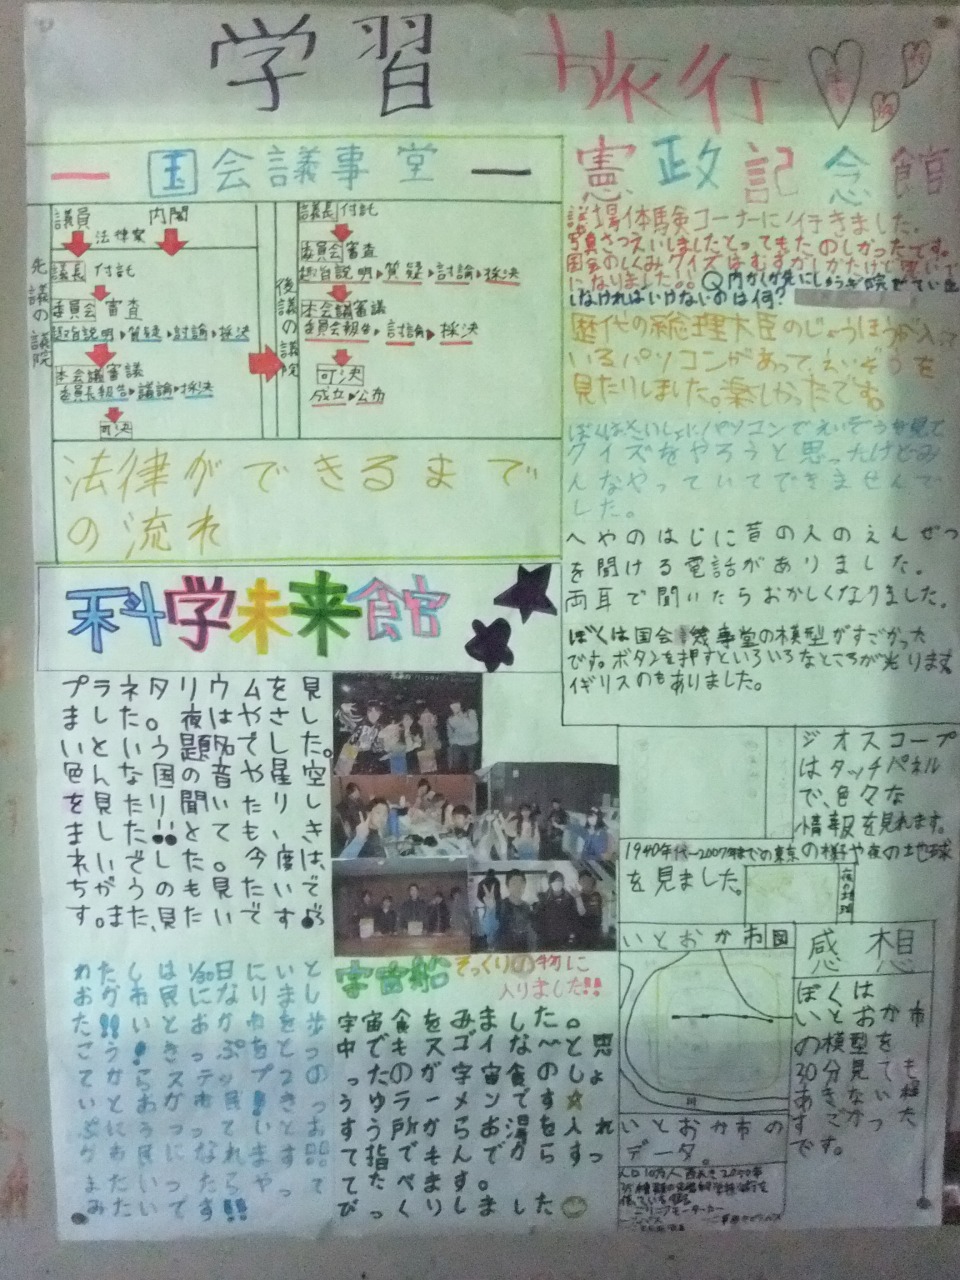 学習 旅行
国会議事堂
議員 内閣
法律案
先議の議院
議長 付託
委員会 審査
趣旨説明▶質疑▶討論▶採決
本会議審議
委員長報告▶議論▶採決
可決
後議の議院
議長 付託
委員会 審査
趣旨説明▶質疑▶討論▶採決
本会議審議
委員会報告▶討論▶採決
可決
成立▶公布
法律ができるまで
の流れ
憲政記念館
議場体験コーナーに行きました。
写真さつえいしましたとってもたのしかったです。
国会のしくみクイズはむずかしかったけど
になりました。。Q内かくが先にしゅうぎ院
しなければいけないのは何?
歴代の総理大臣のじょうほうが入って
いるパソコンがあって、えいぞうを
見たりしました。楽しかったです。
ぼくはさいしょにパソコンでえいぞうを見て
クイズをやろうと思ったけどみ
んなやっていてできませんで
した。
へやのはじに昔の人のえんぜつ
を聞ける電話がありました。
両耳で聞いたらおかしくなりました。
ぼくは国会議事堂の模型がすごかった
です。ボタンを押すといろいろなところが光ります
イギリスのもありました。
科学未来館
プラネタリウムを見
ました。夜はやさし
いという題名でした。
色んな国の音や星空
を見たり聞いたりし
ました!!とてもいき
れいでした。今度は、
ちがうのも見たいで
す。また、見たいです
わたしは1/30日にいと
おか市民になりまし
た!!いとおか市を歩
こう!きっぷをとっ
てからステップ2の
いとおか市民!きっ
ぷにうつっていとお
か市民になれます
またいったらやって
みたいです!!
宇宙船 そっくりの物に
入りました!!
宇宙食をみました。
中でもスゴイな〜と思
ったのが宇宙食のしょ
うゆラーメンです☆
すう所からお湯を入れ
て指でもんでからすっ
てたべます。
びっくりしました
ジオスコープ
はタッチパネル
で、色々な
情報を見れます。
1940年代〜2007年までの東京の様子や夜の地球
を見ました。
夜の地球
いとおか市図
いとおか市の
データ。
感想
ぼくは
いとおか市
の模型を
30分見ても
あきない程
すごかった
です。